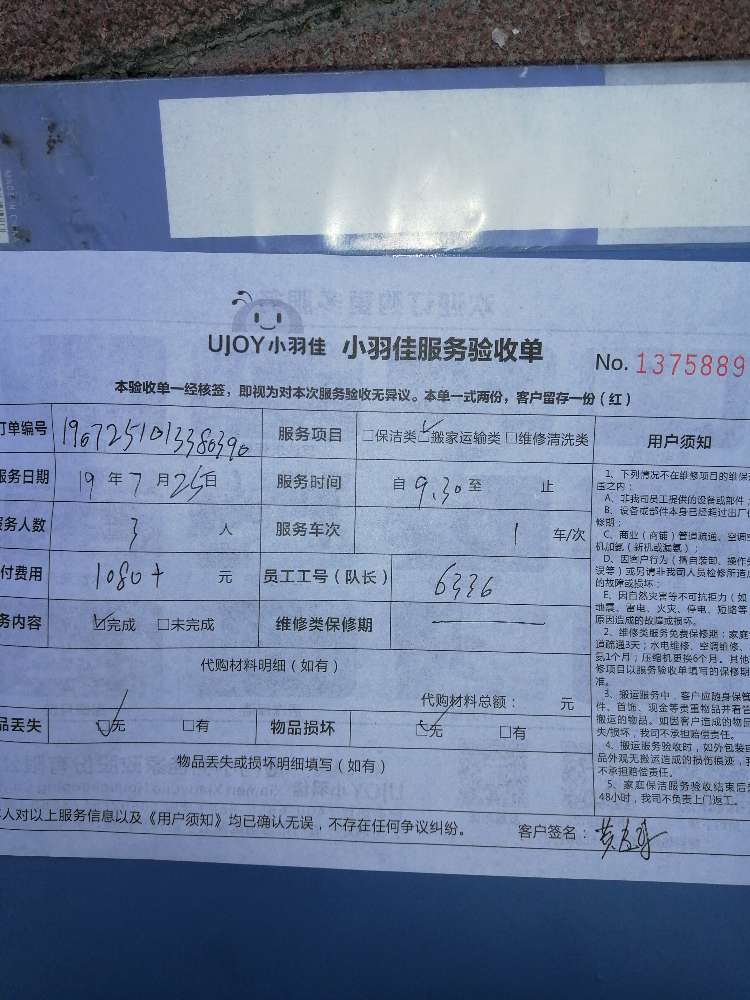 UJOY小羽佳 小羽佳服务验收单 No. 1375889
本验收单一经核签，即视为对本次服务验收无异议。本单一式两份，客户留存一份（红）
订单编号 1907251013380390 服务项目 □保洁类 ☑搬家运输类 □维修清洗类 用户须知
服务日期 19 年 7 月 25 日 服务时间 自 9.30 至 止
服务人数 3 人 服务车次 1 车/次
付费用 1080+ 元 员工工号（队长） 6336
务内容 ☑完成 □未完成 维修类保修期 —
代购材料明细（如有）
代购材料总额： 元
品丢失 ☑无 □有 物品损坏 ☑无 □有
物品丢失或损坏明细填写（如有）
人对以上服务信息以及《用户须知》均已确认无误，不存在任何争议纠纷。 客户签名：
1、下列情况不在维修项目的维保
围之内：
A、非我司员工提供的设备或部件
B、设备或部件本身已经超过出厂
修期；
C、商业（商铺）管道疏通、空调
机加氨（新机或漏氨）；
D、因客户行为（擅自装卸、操作
误等）或另请非我司人员检修所造
的故障或损坏；
E、因自然灾害等不可抗拒力（如
地震、雷电、火灾、停电、短路等
原因造成的故障或损坏。
2、维修类服务免费保修期：家庭
道疏通3天；水电维修、空调维修、
氨1个月；压缩机更换6个月。其他
修项目以服务验收单填写的保修期
准。
3、搬运服务中，客户应随身保管
件、首饰、现金等贵重物品并看管
搬运的物品。如因客户造成的物品
失/损坏，我司不承担赔偿责任。
4、搬运服务验收时，如外包装或
品外观无搬运造成的损伤痕迹，我
不承担赔偿责任。
5、家庭保洁服务验收结束后超
48小时，我司不负责上门返工。